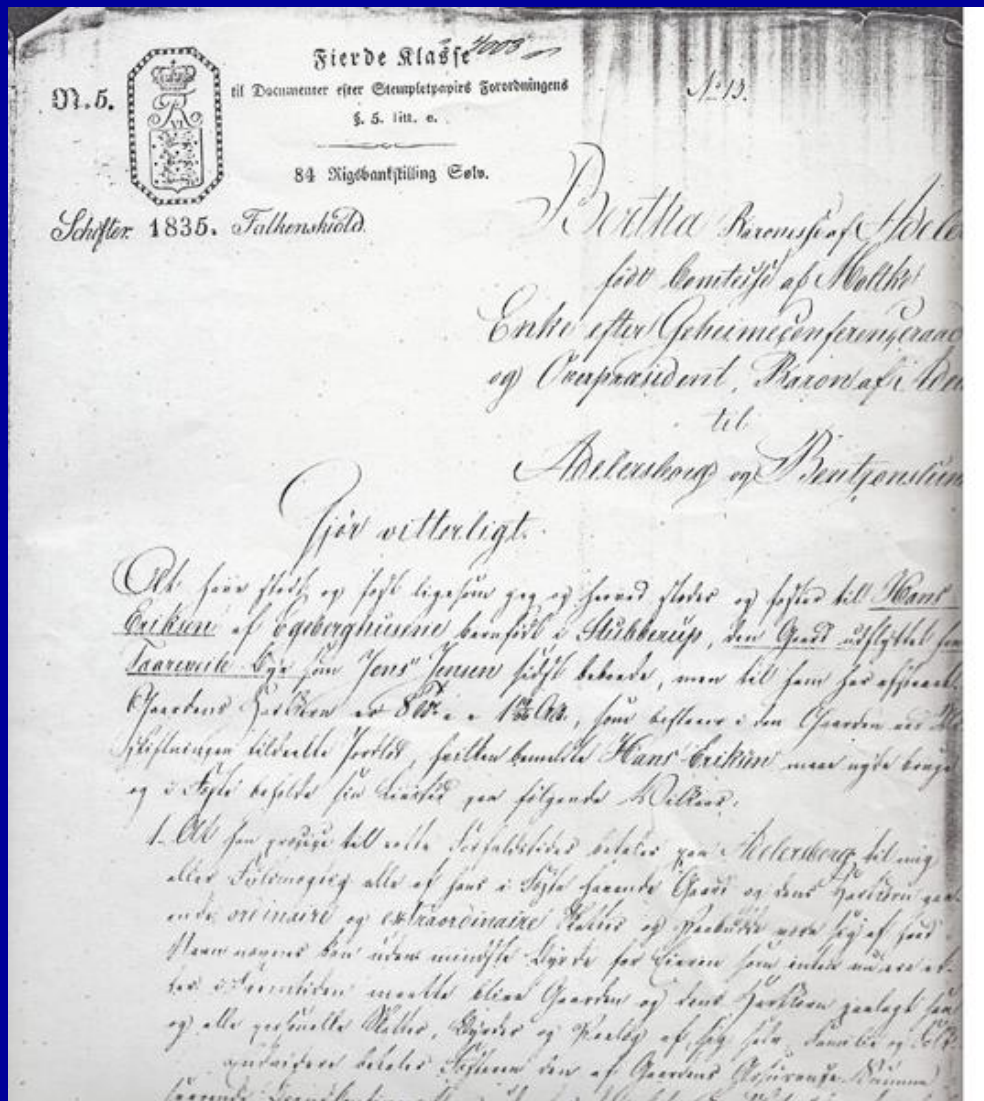 Fierde Klasse 4008
N. 5.
til Documenter efter Stempletpapirs Forordningens
§. 5. litt. e.
No 13.
84 Rigsbankskilling Sølv.
Schøller. 1835. Falkenskiold.
Bertha Baronesse af Adele
født Comtesse af Moltke
Enke efter Geheimeconferenceraad
og Overpræsident, Baron af Adel
til
Adelersborg og Bentzonslun
Gjør vitterligt.
At have stedt og fæst ligesom jeg og herved steder og fæster til Hans
Eriksen af Egeberghusene barnfødt i Stubberup, den Gaard udflyttet fra
Taareveile Bye som Jens Jensen sidst beboede, men til ham har afstaaet.
Gaardens Hartkorn er 8 Td., som bestaaer i den Gaarden ved
Udskiftningen tildeelte Jordlod, hvilken bemeldte Hans Eriksen maae nyde bruge
og i Fæste beholde sin Livstid paa følgende Vilkor:
1. At han præcise til rette Forfaldstider betaler paa Adelersborg til mig
eller Fuldmægtig alle af hans i Fæste havende Gaard og dens Hartkorn gaa-
ende ordinaire og extraordinaire Skatter og Paabud være sig af hvad
Navn nævnes kan uden mindste Byrde for Eieren som enten nu ere el-
ler i Fremtiden maatte blive Gaarden og dens Hartkorn paalagt saa
og alle personelle Skatter, Byrder og Paalæg af sig selv, Familie og Folk
endvidere betaler Fæsteren den af Gaardens Assurance Summa